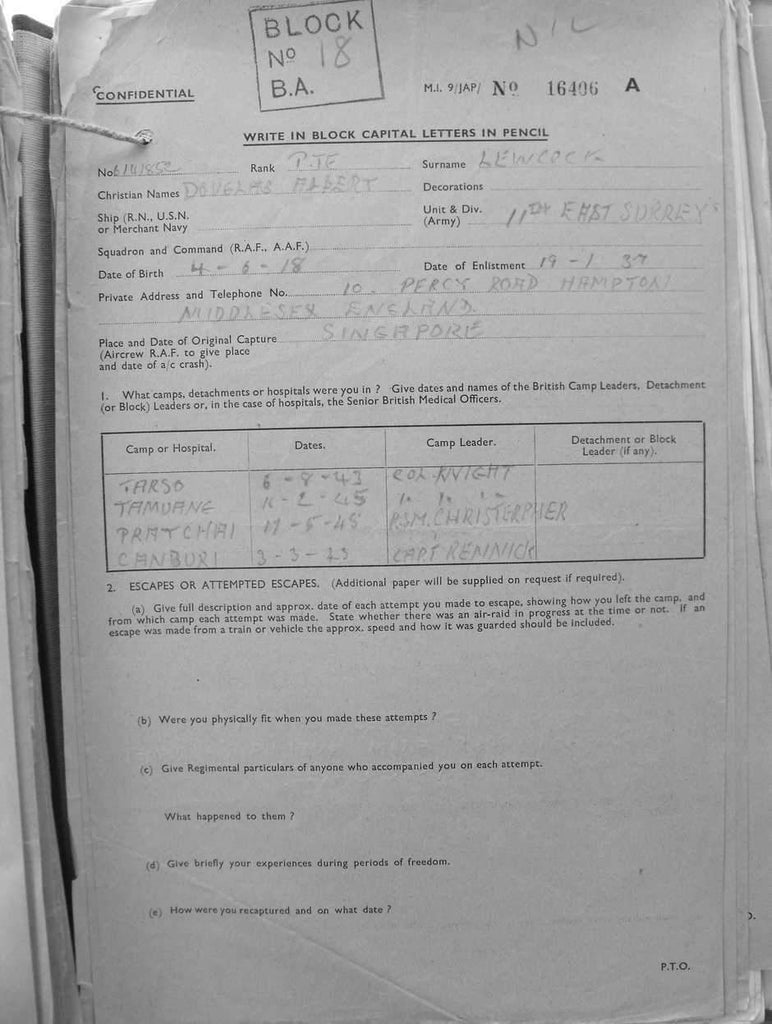 BLOCK
Nº 18
B.A.
NIL
CONFIDENTIAL
M.I. 9/JAP/ Nº 16406 A
WRITE IN BLOCK CAPITAL LETTERS IN PENCIL
No. 6141852 Rank PTE Surname LEWCOCK
Christian Names DOUGLAS ALBERT Decorations
Ship (R.N., U.S.N. or Merchant Navy
Unit & Div. (Army) 11TH EAST SURREY'S
Squadron and Command (R.A.F., A.A.F.)
Date of Birth 4-6-18 Date of Enlistment 19-1 37
Private Address and Telephone No. 10. PERCY ROAD HAMPTON
MIDDLESEX ENGLAND.
Place and Date of Original Capture SINGAPORE
(Aircrew R.A.F. to give place
and date of a/c crash).
1. What camps, detachments or hospitals were you in ? Give dates and names of the British Camp Leaders, Detachment
(or Block) Leaders or, in the case of hospitals, the Senior British Medical Officers.
Camp or Hospital. Dates. Camp Leader. Detachment or Block Leader (if any).
TARSO 6-8-43 COL KNIGHT
TAMUANG -2-45
PRATCHAI -5-45 R.S.M. CHRISTERPHER
CANBURI 3-3- CAPT RENNICK
2. ESCAPES OR ATTEMPTED ESCAPES. (Additional paper will be supplied on request if required).
(a) Give full description and approx. date of each attempt you made to escape, showing how you left the camp, and
from which camp each attempt was made. State whether there was an air-raid in progress at the time or not. If an
escape was made from a train or vehicle the approx. speed and how it was guarded should be included.
(b) Were you physically fit when you made these attempts ?
(c) Give Regimental particulars of anyone who accompanied you on each attempt.
What happened to them ?
(d) Give briefly your experiences during periods of freedom.
(e) How were you recaptured and on what date ?
P.T.O.